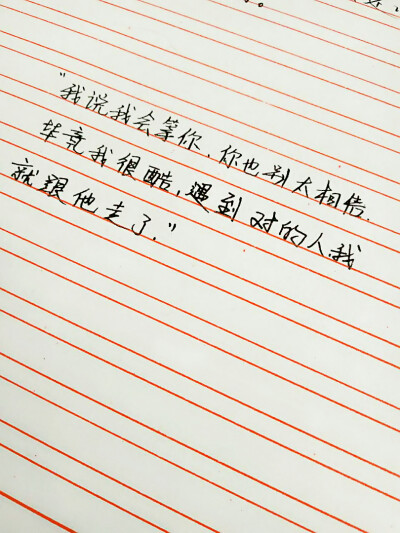 "我说我会等你,你也别太相信.
毕竟我很酷,遇到对的人.我
就跟他走了."